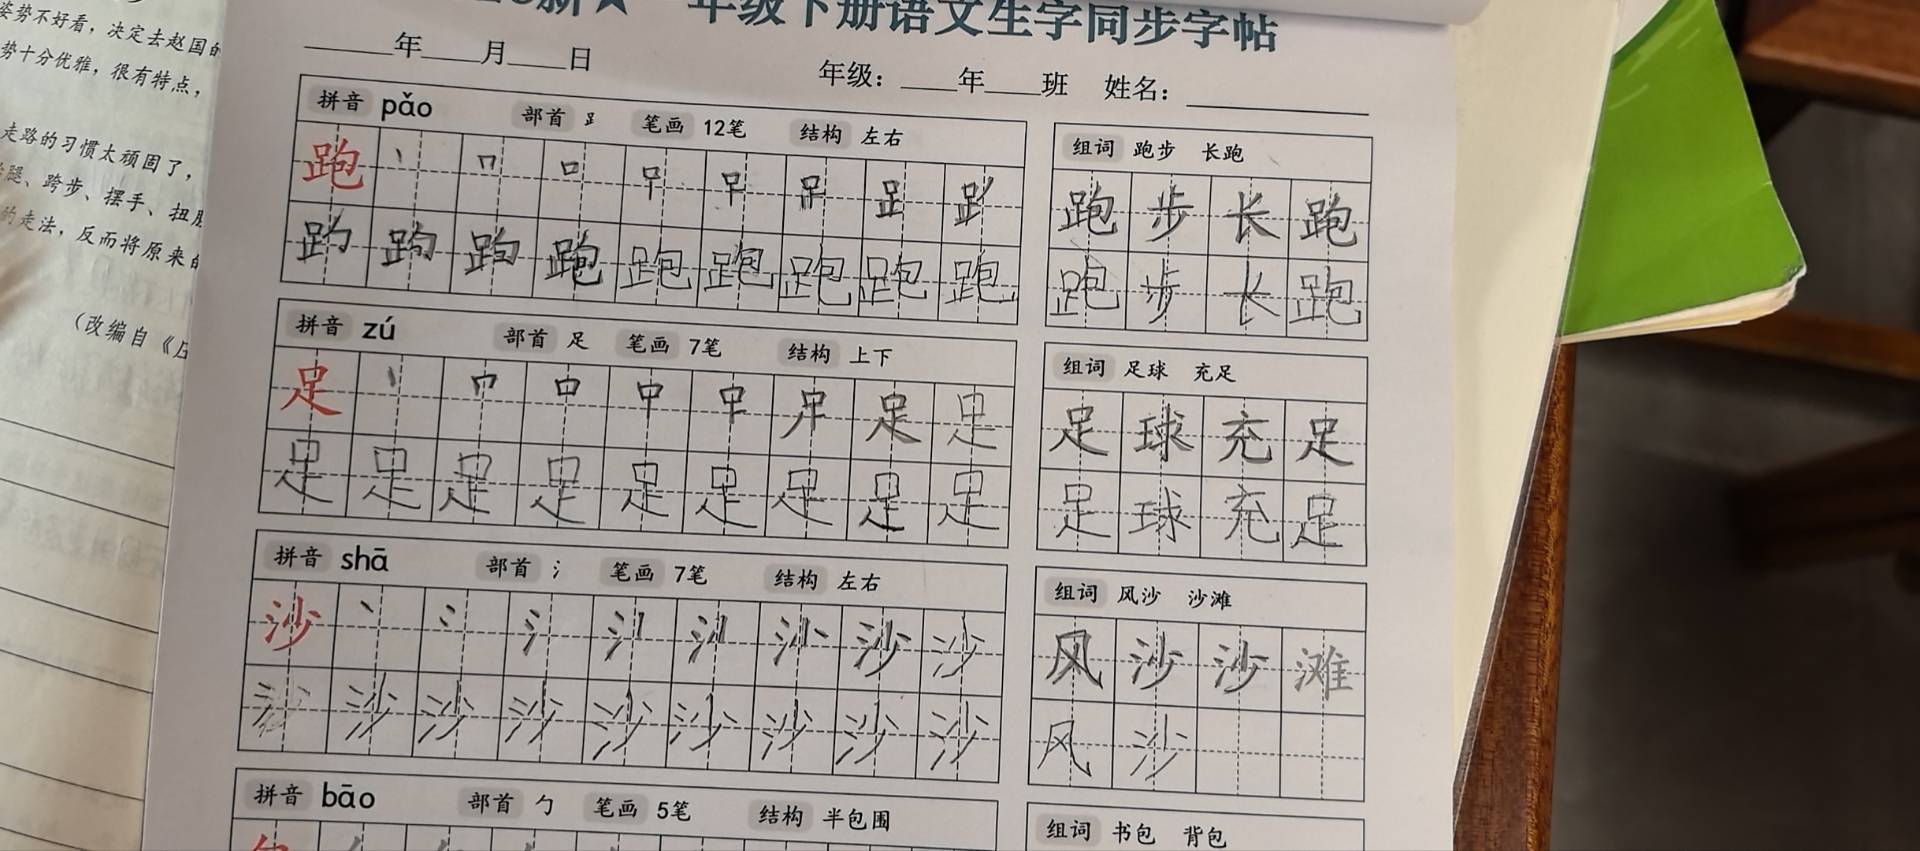 年级下册语文生字同步字帖
年 月 日 年级: 年 班 姓名:
姿势不好看,决定去赵国的
势十分优雅,很有特点,
走路的习惯太顽固了,
腿、跨步、摆手、扭
的走法,反而将原来
(改编自《
拼音 pǎo 部首 ⻊ 笔画 12笔 结构 左右
跑
跑 跑 跑 跑 跑 跑
组词 跑步 长跑
跑 步 长 跑
跑 步 长 跑
拼音 zú 部首 足 笔画 7笔 结构 上下
足 足 足
足 足 足 足 足 足 足 足 足
组词 足球 充足
足 球 充 足
足 球 充 足
拼音 shā 部首 氵 笔画 7笔 结构 左右
沙 沙 沙
沙 沙 沙 沙 沙 沙 沙 沙
组词 风沙 沙滩
风 沙 沙 滩
风 沙
拼音 bāo 部首 勹 笔画 5笔 结构 半包围
组词 书包 背包